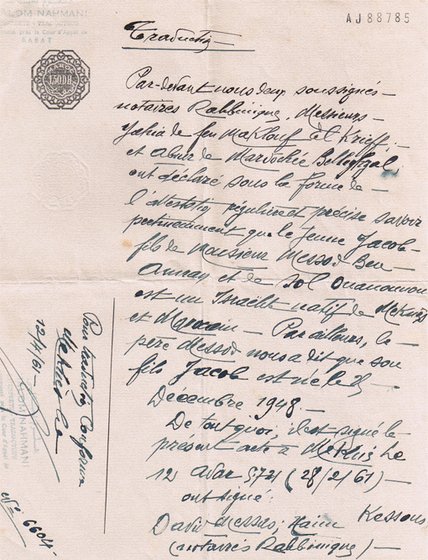 AJ88785
LOM NAHMANI
près la Cour d'Appel de
RABAT
150DH
Traduction
Par-devant nous deux soussignés
notaires Rabbinique, Messieurs
Yahia de feu Maklouf El Krieff
et Abner de Mardochée
ont déclaré sous la forme de
l'attestation régulière et précise savoir
pertinemment que le jeune Jacob
fils de Monsieur Messod Ben
et de Sol
est un Israelite natif de Meknès
et Marocain – Par ailleurs, le
père Messod nous a dit que son
fils Jacob est né le
Décembre 1948.
De tout quoi, il est signé le
présent acte à Meknès le
12 adar 5721 (28/2/61)
ont signé:
David Messas, Haïm Kessous
(notaires Rabbinique)
Pour traduction Conforme
Meknès le
12/4/61
LOM NAHMANI
N° 6604